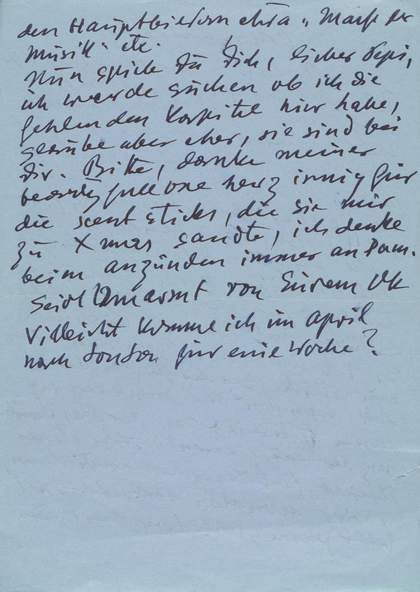 den Hauptliedern etwa "Macht der
Musik" etc.
Nun spiele für Dich, lieber
ich werde suchen ob ich die
fehlenden Kapitel hier habe,
glaube aber eher, sie sind bei
Dir. Bitte, danke meiner
one herzinnig für
die scent sticks, die sie mir
zu Xmas sandte, ich denke
beim anzünden immer an Pam.
Seid Umarmt von Eurem OK
Vielleicht komme ich im April
nach London für eine Woche?